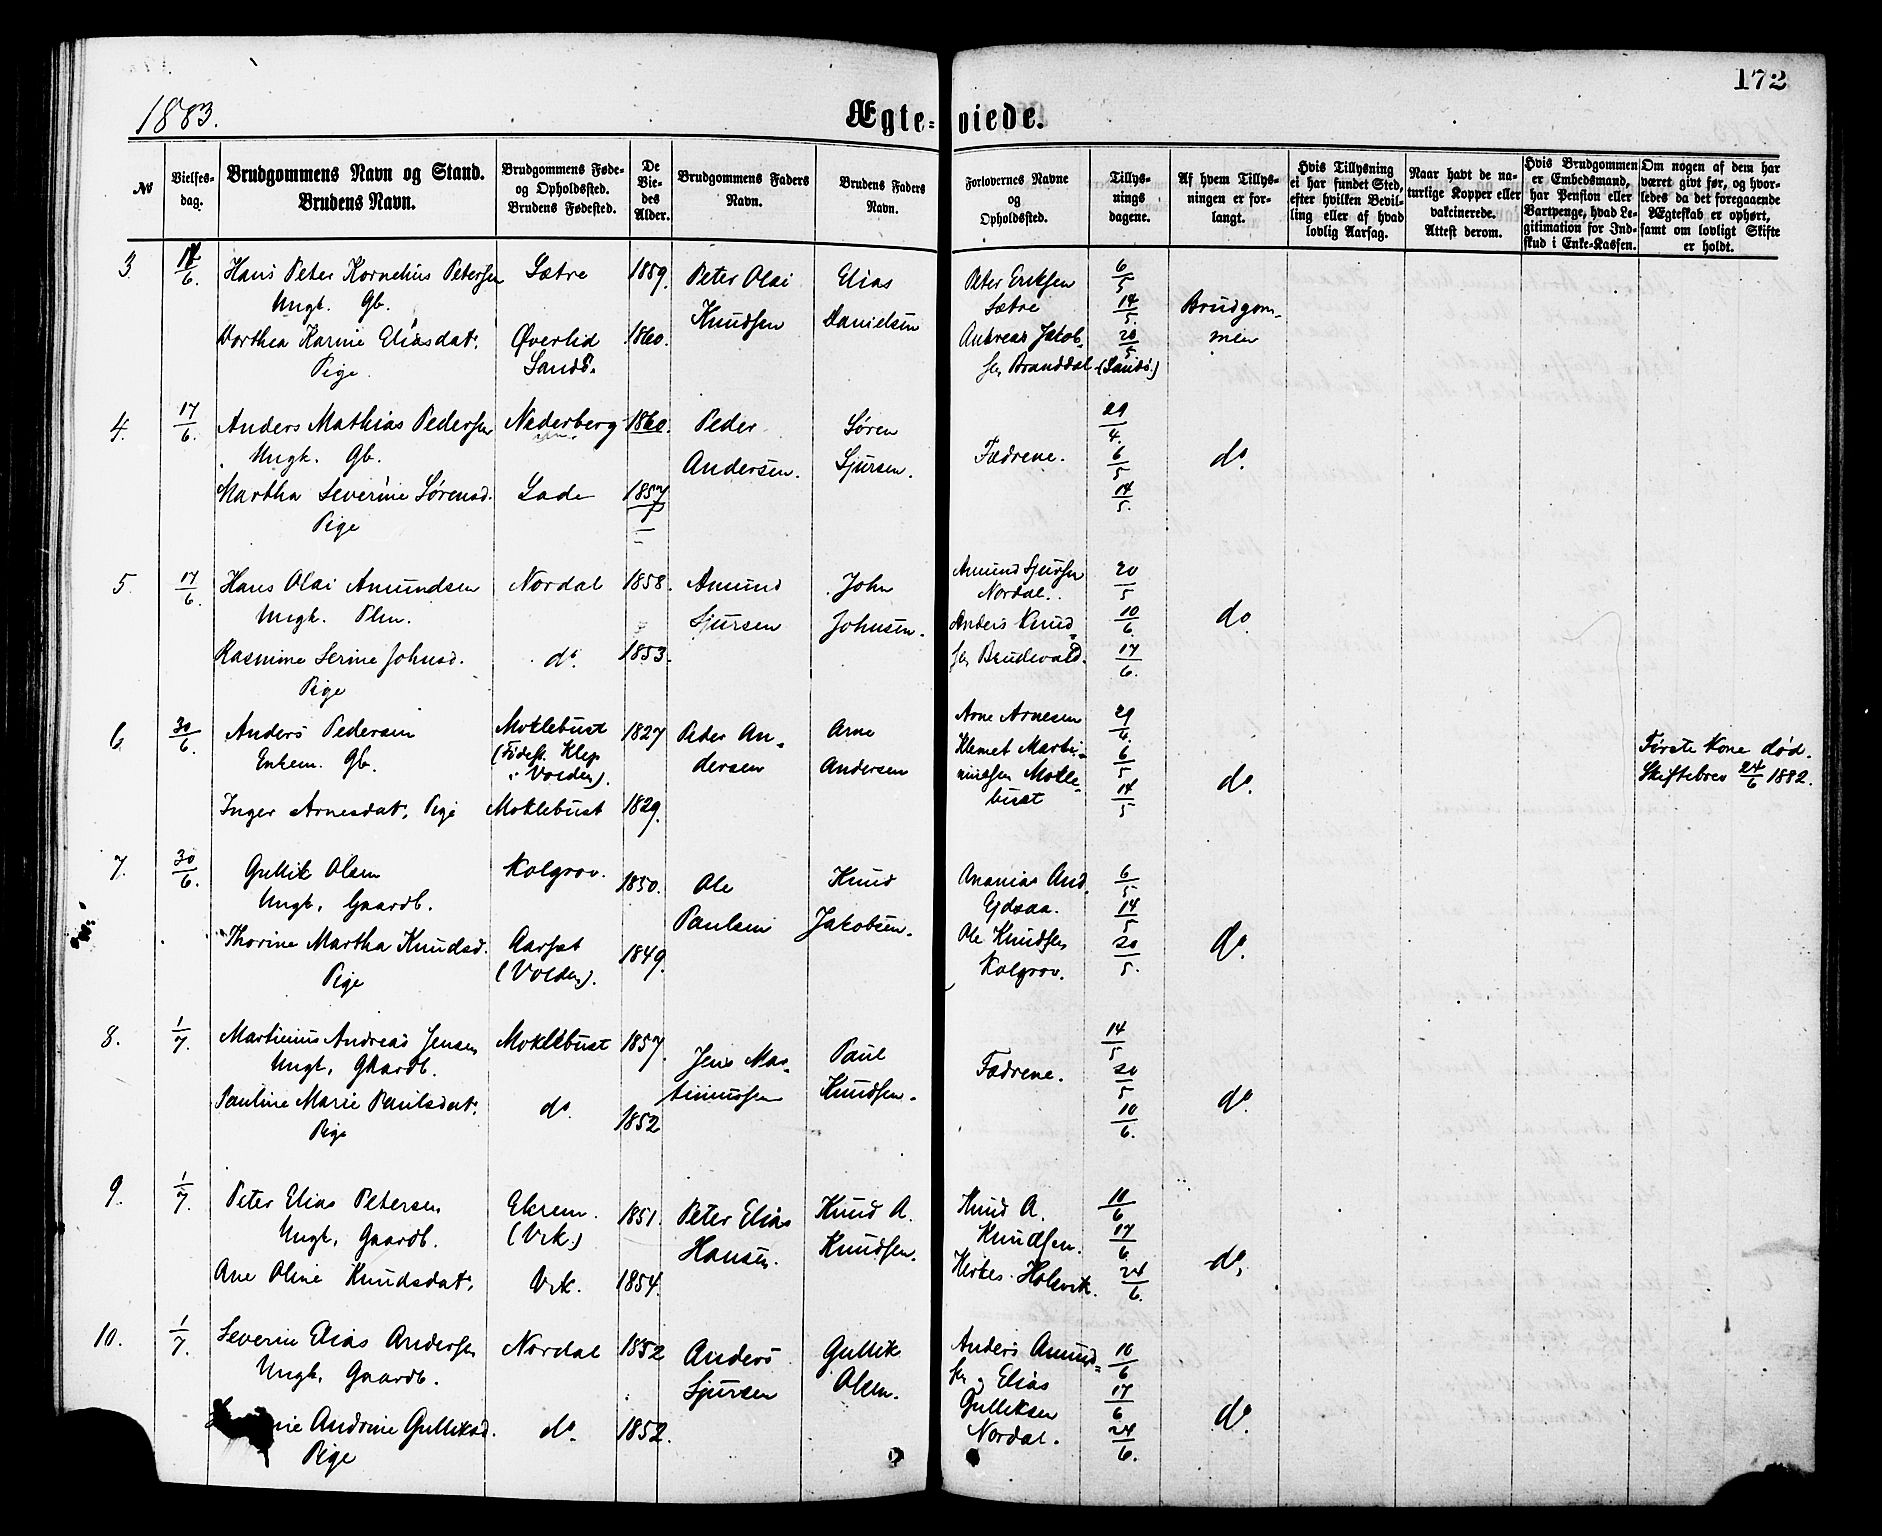 172
1883.
Ægte-viede.
№
Vielses-
dag.
Brudgommens Navn og Stand.
Brudens Navn.
Brudgommens Føde-
og Opholdssted.
Brudens Fødested.
De
Vie-
des
Alder.
Brudgommens Faders
Navn.
Brudens Faders
Navn.
Forlovernes Navne
og
Opholdssted.
Tillys-
nings
dagene.
Af hvem Tillys-
ningen er for-
langt.
Hvis Tillysning
ei har fundet Sted,
efter hvilken Bevil-
ling eller af hvad
lovlig Aarsag.
Naar havt de na-
turlige Kopper eller
vakcinerede.
Attest derom.
Hvis Brudgommen
er Embedsmand,
har Pension eller
Vartpenge, hvad Le-
gitimation for Ind-
skud i Enke-Kassen.
Om nogen af dem har
været givt før, og hvor-
ledes da det foregaaende
Ægteskab er ophørt,
samt om lovligt Skifte
er holdt.
3.
/6
Hans Peter Kornelius Petersen
Ungk. Gb.
Dorthea Karine Eliasdat.
Pige.
Sætre
Øverlid
Sandø.
1859.
1860.
Peter Olai
Knudsen
Elias
Danielsen
Peter Eriksen
Sætre
Andreas Jakob-
sen Branddal
6/5
14/5
20/5
(Sandø.)
Brudgom-
men
4.
17/6.
Anders Mathias Pedersen
Ungk. Gb.
Martha Severine Sørensd.
Pige
Nederberg
Lade
1860.
1857
Peder
Andersen.
Søren
Sjursen.
Fædrene.
29/4.
6/5
14/5.
do.
5.
17/6.
Hans Olai Amundsen
Ungk. Plm.
Rasmine Serine Johnsd.
Pige
Nordal
do.
1858.
1853.
Amund
Sjursen
John
Johnsen.
Amund Sjursen
Nordal.
Anders Knud-
sen Brudevold.
20/5
10/6.
17/6.
do
6.
30/6.
Anders Pedersen
Enkem. Gb.
Inger Arnesdat. Pige
Moklebust
(Fødest. Klep
i Volden).
Moklebust
1827
1829.
Peder An-
dersen
Arne
Andersen
Arne Arnesen
Klemet Marti-
niussen Mokle-
bust
29/6.
6/5
14/5
do.
Første Kone død.
Skiftebrev 24/6 1882.
7.
30/6.
Gullik Olsen
Ungk. Gaardb.
Thorine Martha Knudsd.
Pige
Kolgrov.
Aarset
(Volden).
1850.
1849.
Ole
Paulsen
Knud
Jakobsen.
Ananias And.
Ydsaa.
Ole Knudsen
Kolgrov.
6/5
14/5
20/5.
do.
8.
1/7.
Martinus Andreas Jensen
Ungk. Gaardb.
Pauline Marie Paulsdat.
Pige
Moklebust
do.
1857.
1852
Jens Mar-
tinussen
Paul
Knudsen.
Fædrene.
14/5
20/5
10/6.
do.
9.
1/7.
Peter Elias Petersen
Ungk. Gaardb.
Ane Oline Knudsdat.
Ekrem.
(Vik.)
Vik.
1851.
1854.
Peter Elias
Hansen.
Knud A.
Knudsen.
Knud A.
Knudsen.
Holsvik.
10/6
17/6
24/6.
do.
10.
1/7.
Severin Elias Andersen
Ungk. Gaardb.
Andrine Gulliksd.
Pige
Nordal
do.
1852
1852.
Anders
Sjursen
Gullik
Olsen.
Anders Amund-
sen og Elias
Gulliksen
Nordal.
10/6
17/6
24/6.
do.